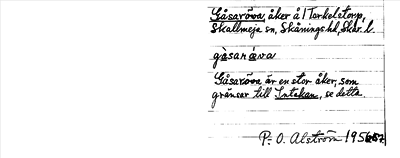 Gåsaröva, åker å 1 Torkelstorp,
Skallmeja sn, Skånings hd, Skar. l.
gåsaröva
Gåsaröva är en stor åker, som
gränsar till Intakan, se detta.
P. O. Alström